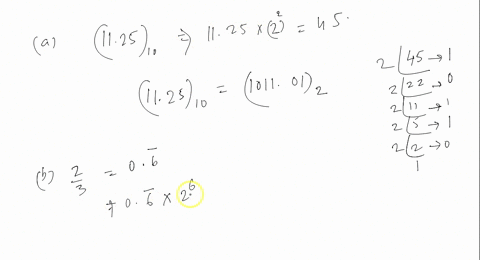 (a) (11.25)₁₀ ⇒ 11.25 × (2)² = 45.
(11.25)₁₀ = (1011.01)₂
2 45 → 1
2 22 → 0
2 11 → 1
2 5 → 1
2 2 → 0
1
(b) 2/3 = 0.6̅
0.6̅ × 2⁶